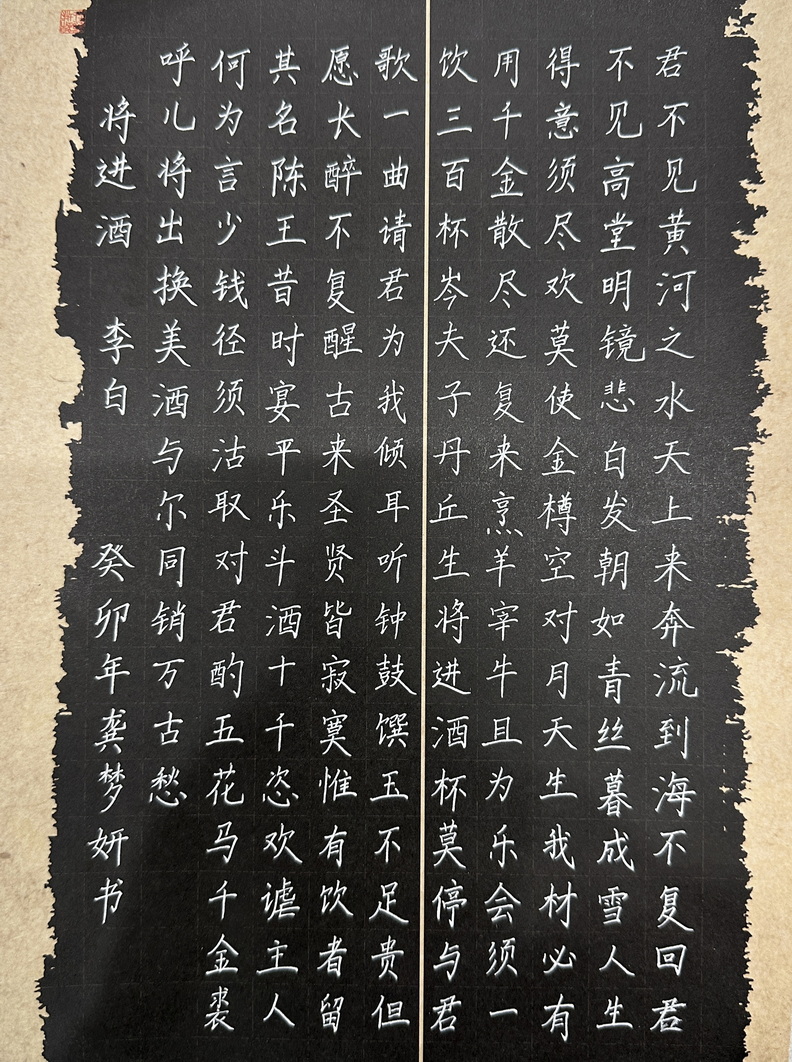 君不见黄河之水天上来奔流到海不复回君
不见高堂明镜悲白发朝如青丝暮成雪人生
得意须尽欢莫使金樽空对月天生我材必有
用千金散尽还复来烹羊宰牛且为乐会须一
饮三百杯岑夫子丹丘生将进酒杯莫停与君
歌一曲请君为我倾耳听钟鼓馔玉不足贵但
愿长醉不复醒古来圣贤皆寂寞惟有饮者留
其名陈王昔时宴平乐斗酒十千恣欢谑主人
何为言少钱径须沽取对君酌五花马千金裘
呼儿将出换美酒与尔同销万古愁
将进酒 李白 癸卯年龚梦妍书